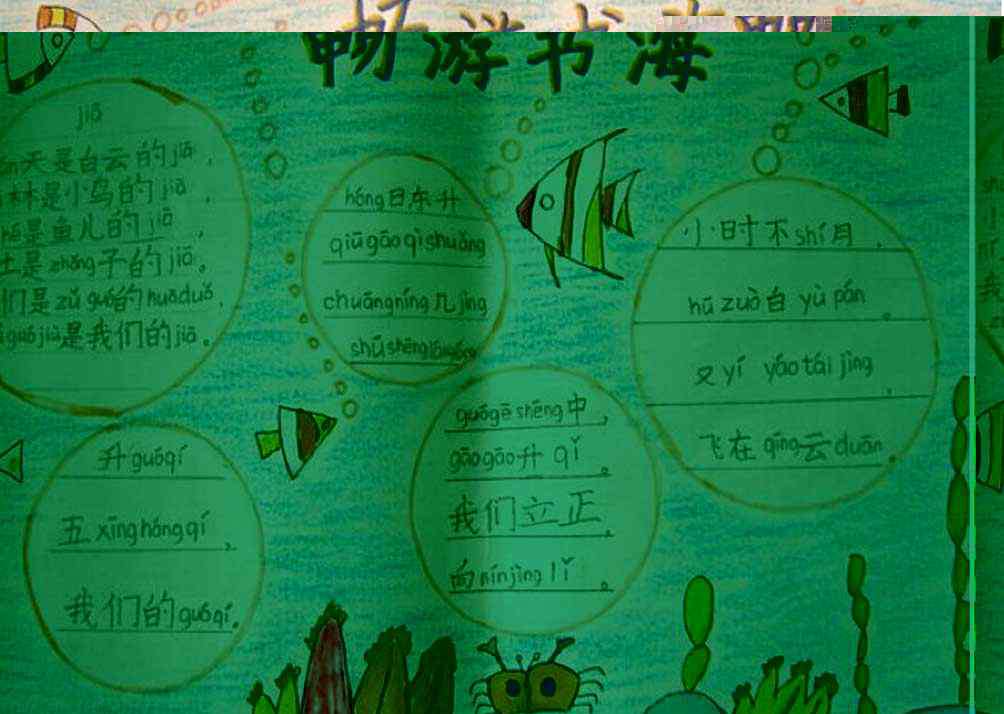 畅游书海
jiā
天是白云的jiā,
林是小鸟的jiā,
是鱼儿的jiā,
土是zhǒng子的jiā。
们是zǔ guó的huāduǒ,
guó jiā是我们的jiā。
hóng日东升
qiū gāo qì shuǎng
chuāngmíng几jìng
shū shēng
小时不shí月,
hū zuò白 yù pán。
又yí yáo tái jìng,
飞在qīng云duān。
guógē shēng中,
gāo gāo升 qǐ。
我们立正,
向 jìng lǐ。
升guóqí
五xīng hóng qí,
我们的guó qí。